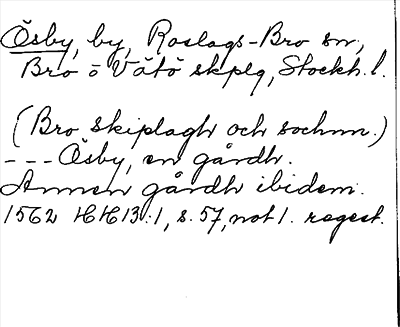 Ösby, by, Roslags-Bro sn,
Bro o Vätö skplg, Stockh. l.
(Bro skiplagh och sochnn.)
--- Ösby, en gårdh.
Annen gårdh ibidem.
1562 HH13:1, s. 57, not 1. regest.